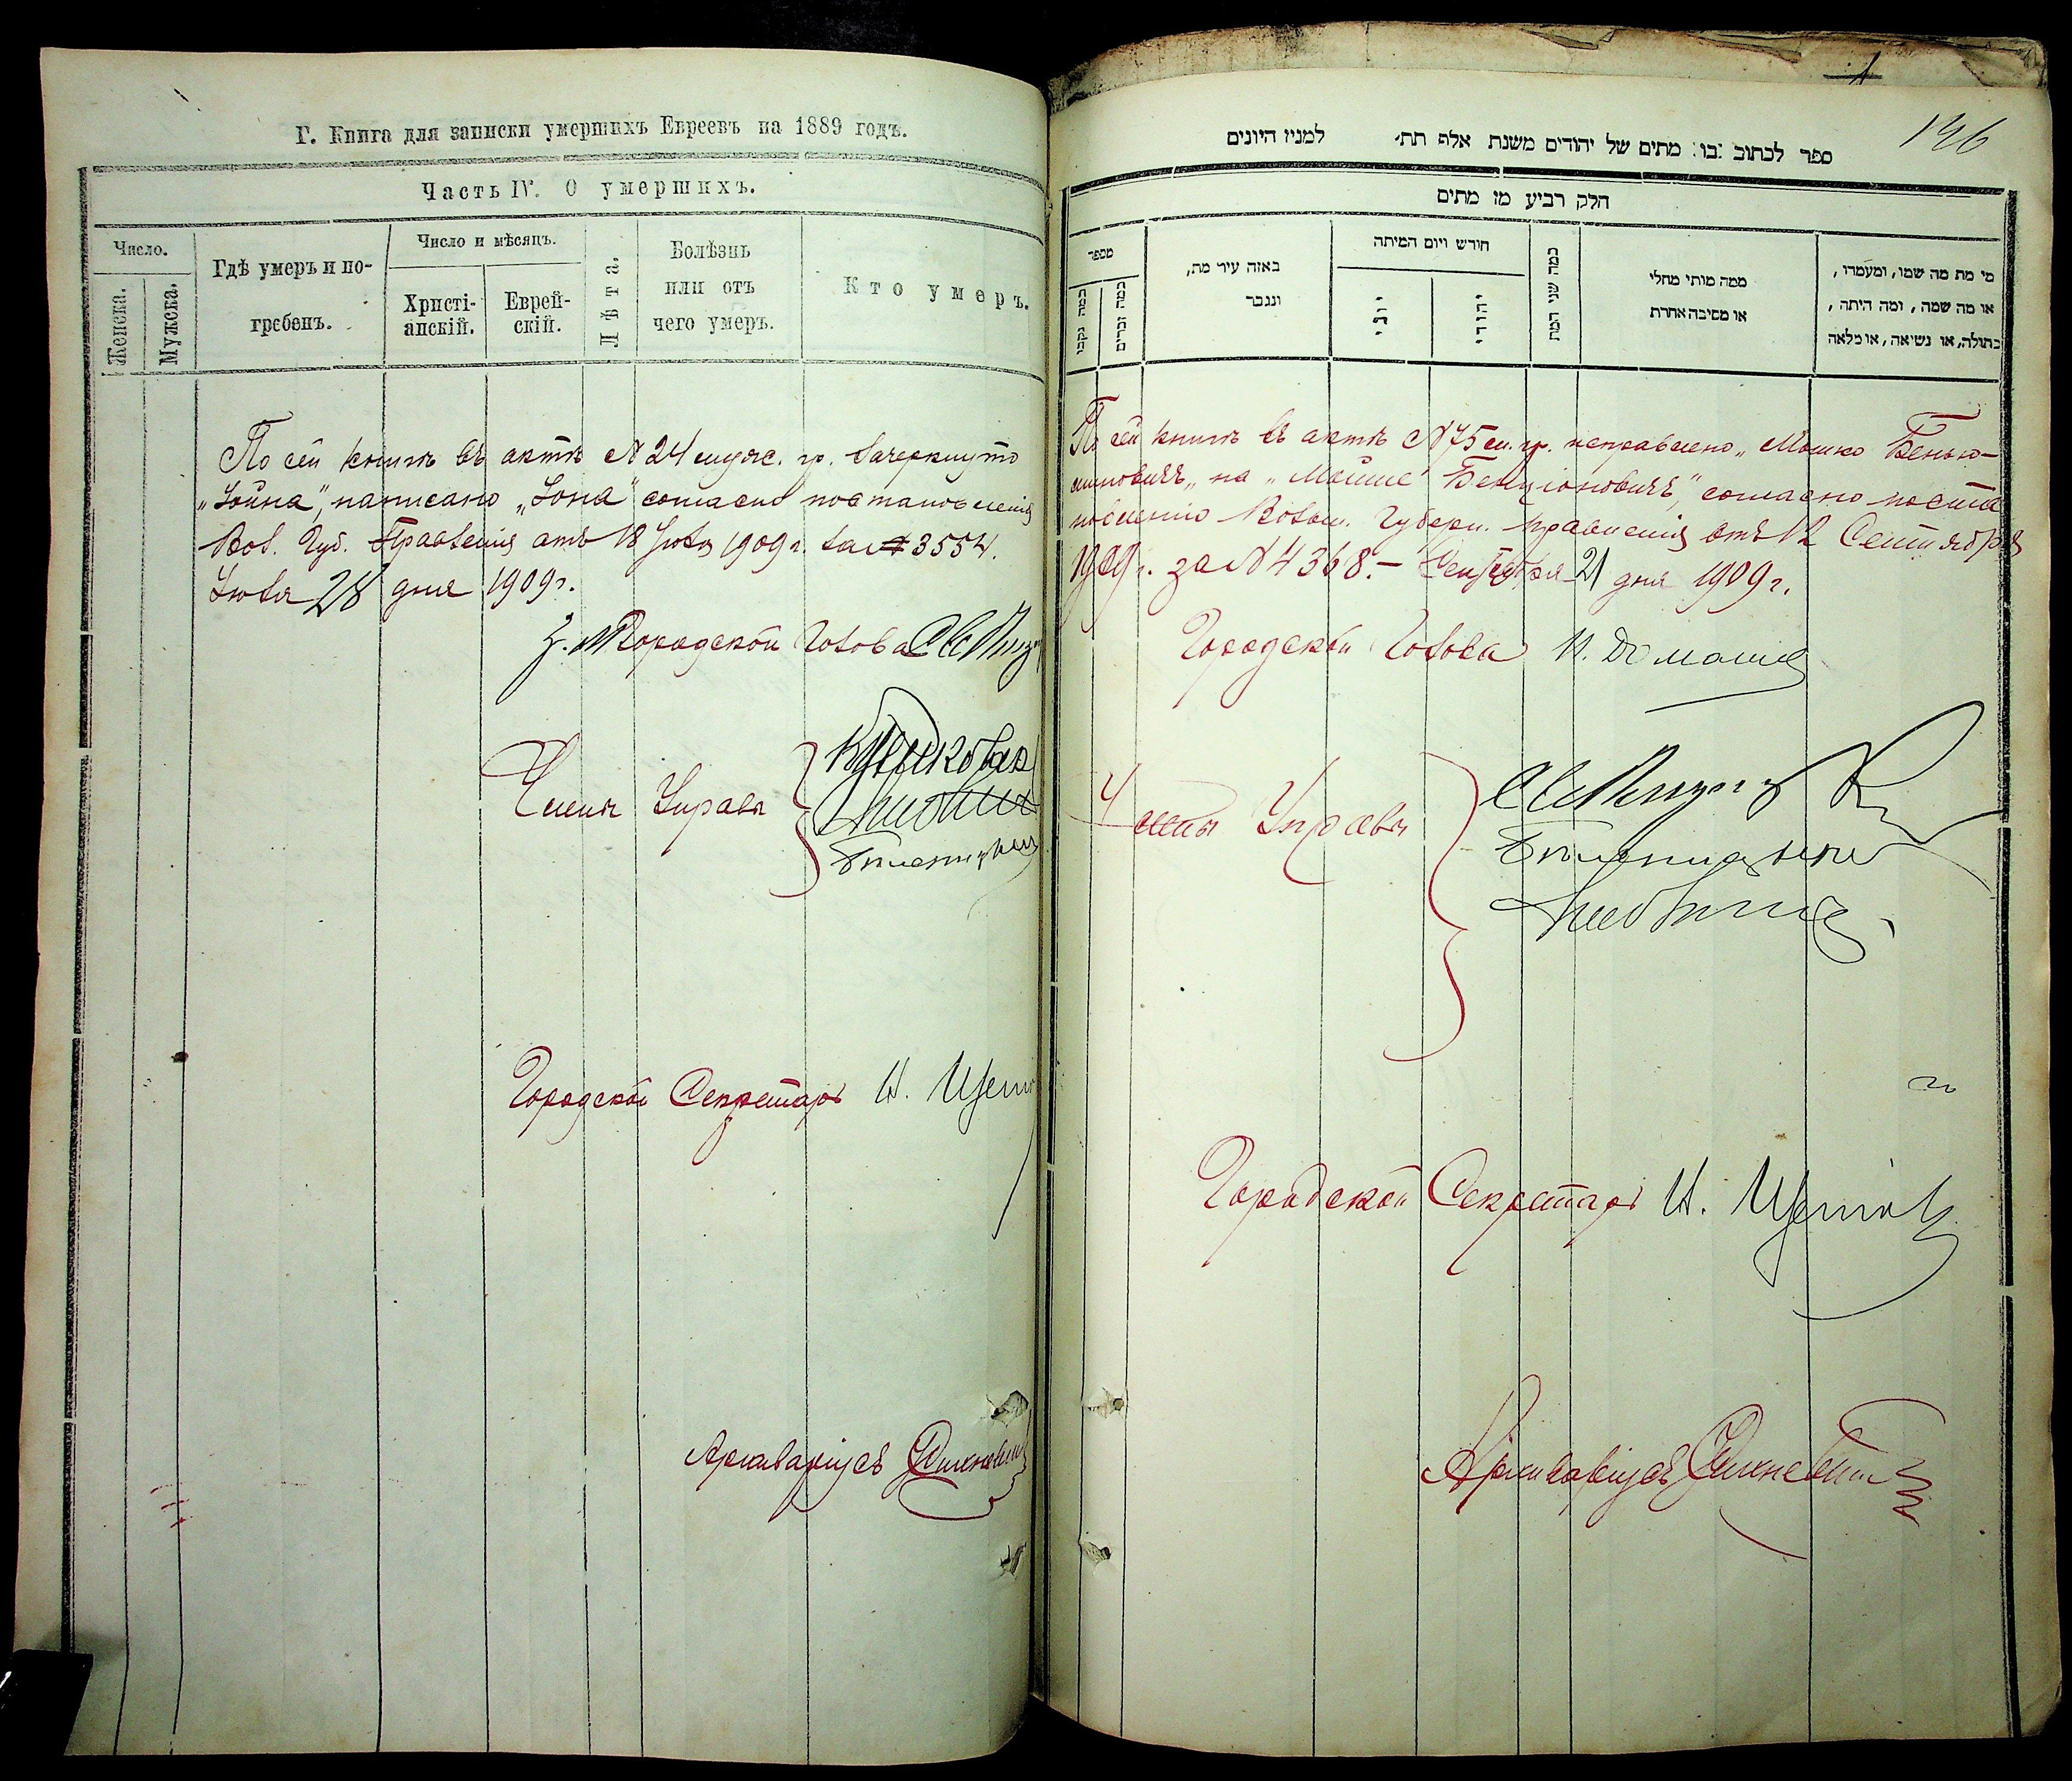 Г. Книга для записки умершихъ Евреевъ на 1889 годъ.
Часть IV. О умершихъ.
Число.
Женска.
Мужска.
Гдѣ умеръ и по-
гребенъ.
Число и мѣсяцъ.
Христі-
анскій.
Еврей-
скій.
Лѣта.
Болѣзнь
или отъ
чего умеръ.
Кто умеръ.
По сей книгѣ въ актѣ № 24 мужс. гр. зачеркнуто
„Іойна", написано „Іона" согласно постановленія
Вол. Губ. Правленія отъ 18 Іюля 1909 г. за № 3554.
Іюля 28 дня 1909 г.
Городской Голова
Члены Управы
Городской Секретарь И.
Архиваріусъ
196
ספר לכתוב בו: מתים של יהודים משנת אלף תת׳ למניז היונים
חלק רביע מז מתים
מספר
כמה נקבי
כמה זכרים
באזה עיר מת,
ונגבר
חורש ויום המיתה
יוני
יהודי
כמה שני המת
ממה מותי מחלי
או מסיבה אחרת
מי מת מה שמו, ומעמדו,
או מה שמה, ומה היתה,
בתולה, או נשיאה, או מלאה
По сей книгѣ въ актѣ № 75 м. гр. исправлено „Мошко Бенью-
миновичъ„ на „Мойше Бенціоновичъ", согласно поста
новленію Волын. Губерн. Правленія отъ 12 Сентября
1909 г. за № 4368. – Сентября 21 дня 1909 г.
Городской Голова
Члены Управы
Городской Секретарь И.
Архиваріусъ